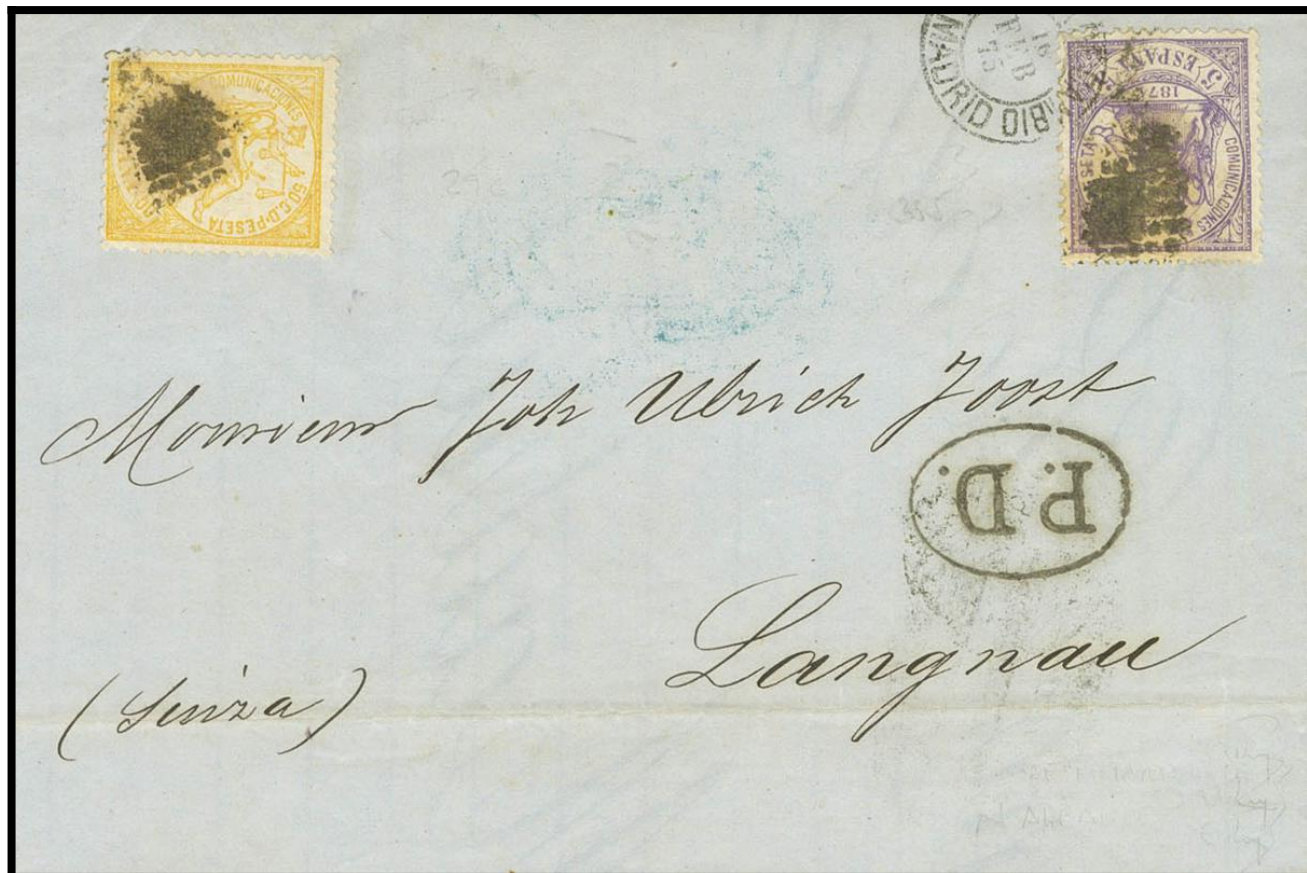 COMUNICACIONES
50 C. Dᴱ PESETA
MADRID
16
FEB
75
ESPAÑA
187
COMUNICACIONES
Monsieur Joh Ulrich Joost
P.D.
Langnau
(Suiza)